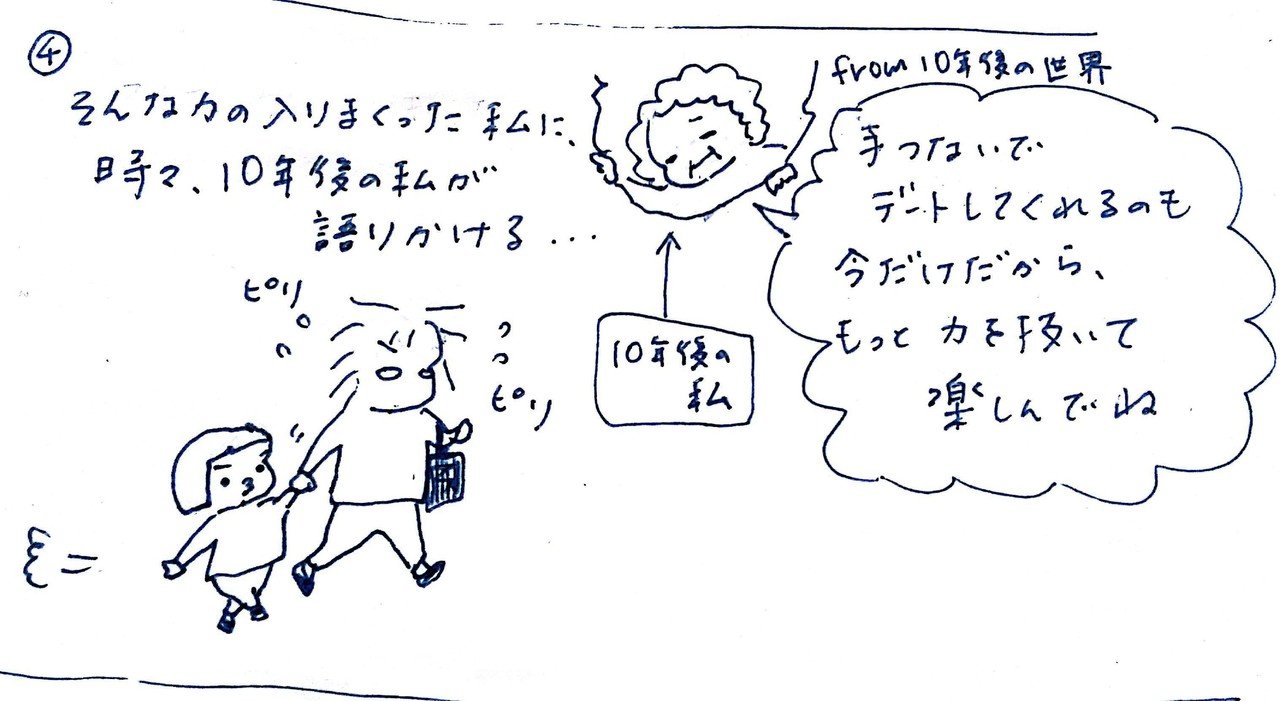 ④
そんな力の入りまくった私に、
時々、10年後の私が
語りかける...
from 10年後の世界
手つないで
デートしてくれるのも
今だけだから、
もっと力を抜いて
楽しんでね
10年後の
私
ピリ
ピリ